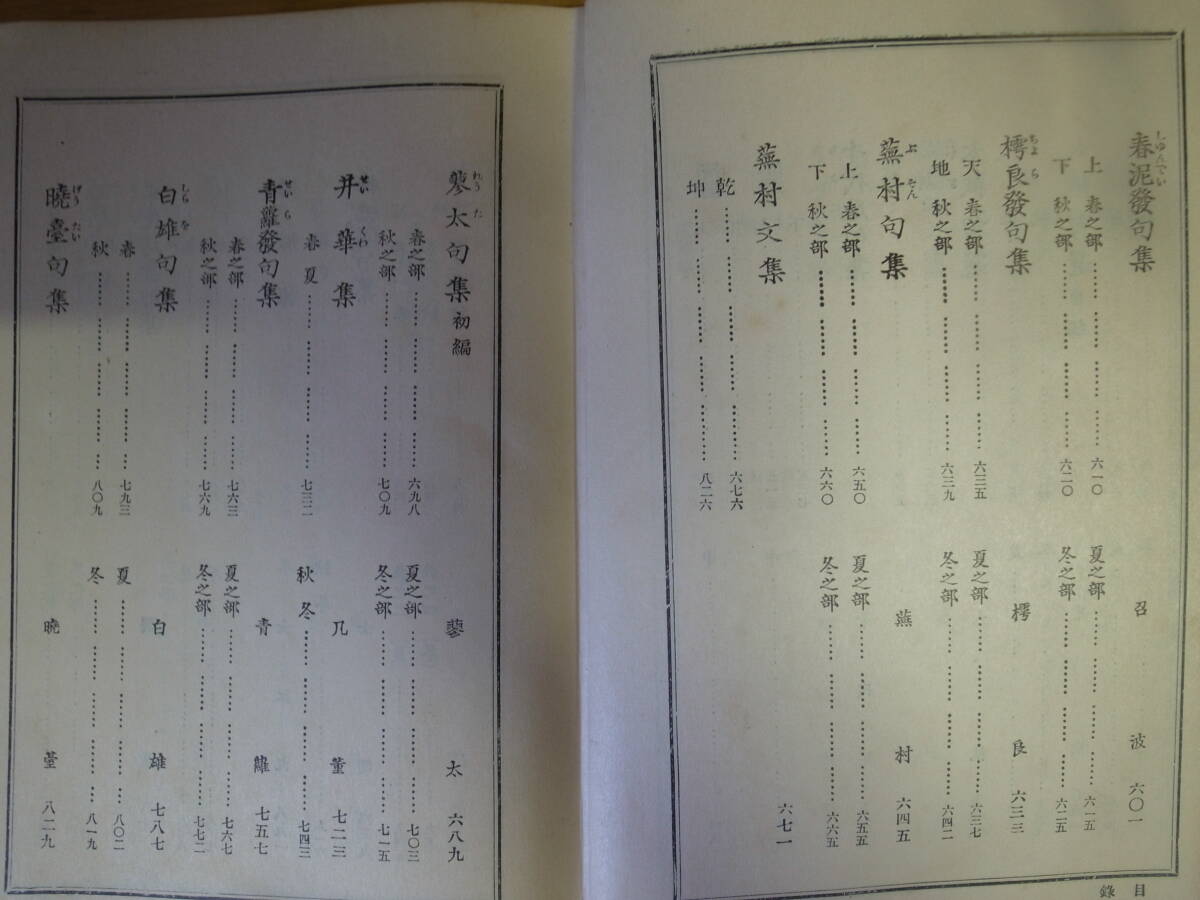 春泥發句集 召波 六〇一
上 春之部 六一〇 夏之部 六一五
下 秋之部 六二〇 冬之部 六二五
樗良發句集 樗良 六三三
天 春之部 六三五 夏之部 六三七
地 秋之部 六三九 冬之部 六四二
蕪村句集 蕪村 六四五
上 春之部 六五〇 夏之部 六五五
下 秋之部 六六〇 冬之部 六六五
蕪村文集 六七一
乾 六七六
坤 八二六
目錄
蓼太句集初編 蓼太 六八九
春之部 六九八 夏之部 七〇三
秋之部 七〇九 冬之部 七一五
井華集 几董 七二三
春夏 七三二 秋冬 七四三
青蘿發句集 青蘿 七五七
春之部 七六三 夏之部 七六七
秋之部 七六九 冬之部 七七二
白雄句集 白雄 七八七
春 七九三 夏 八〇二
秋 八〇九 冬 八一九
曉臺句集 曉臺 八二九